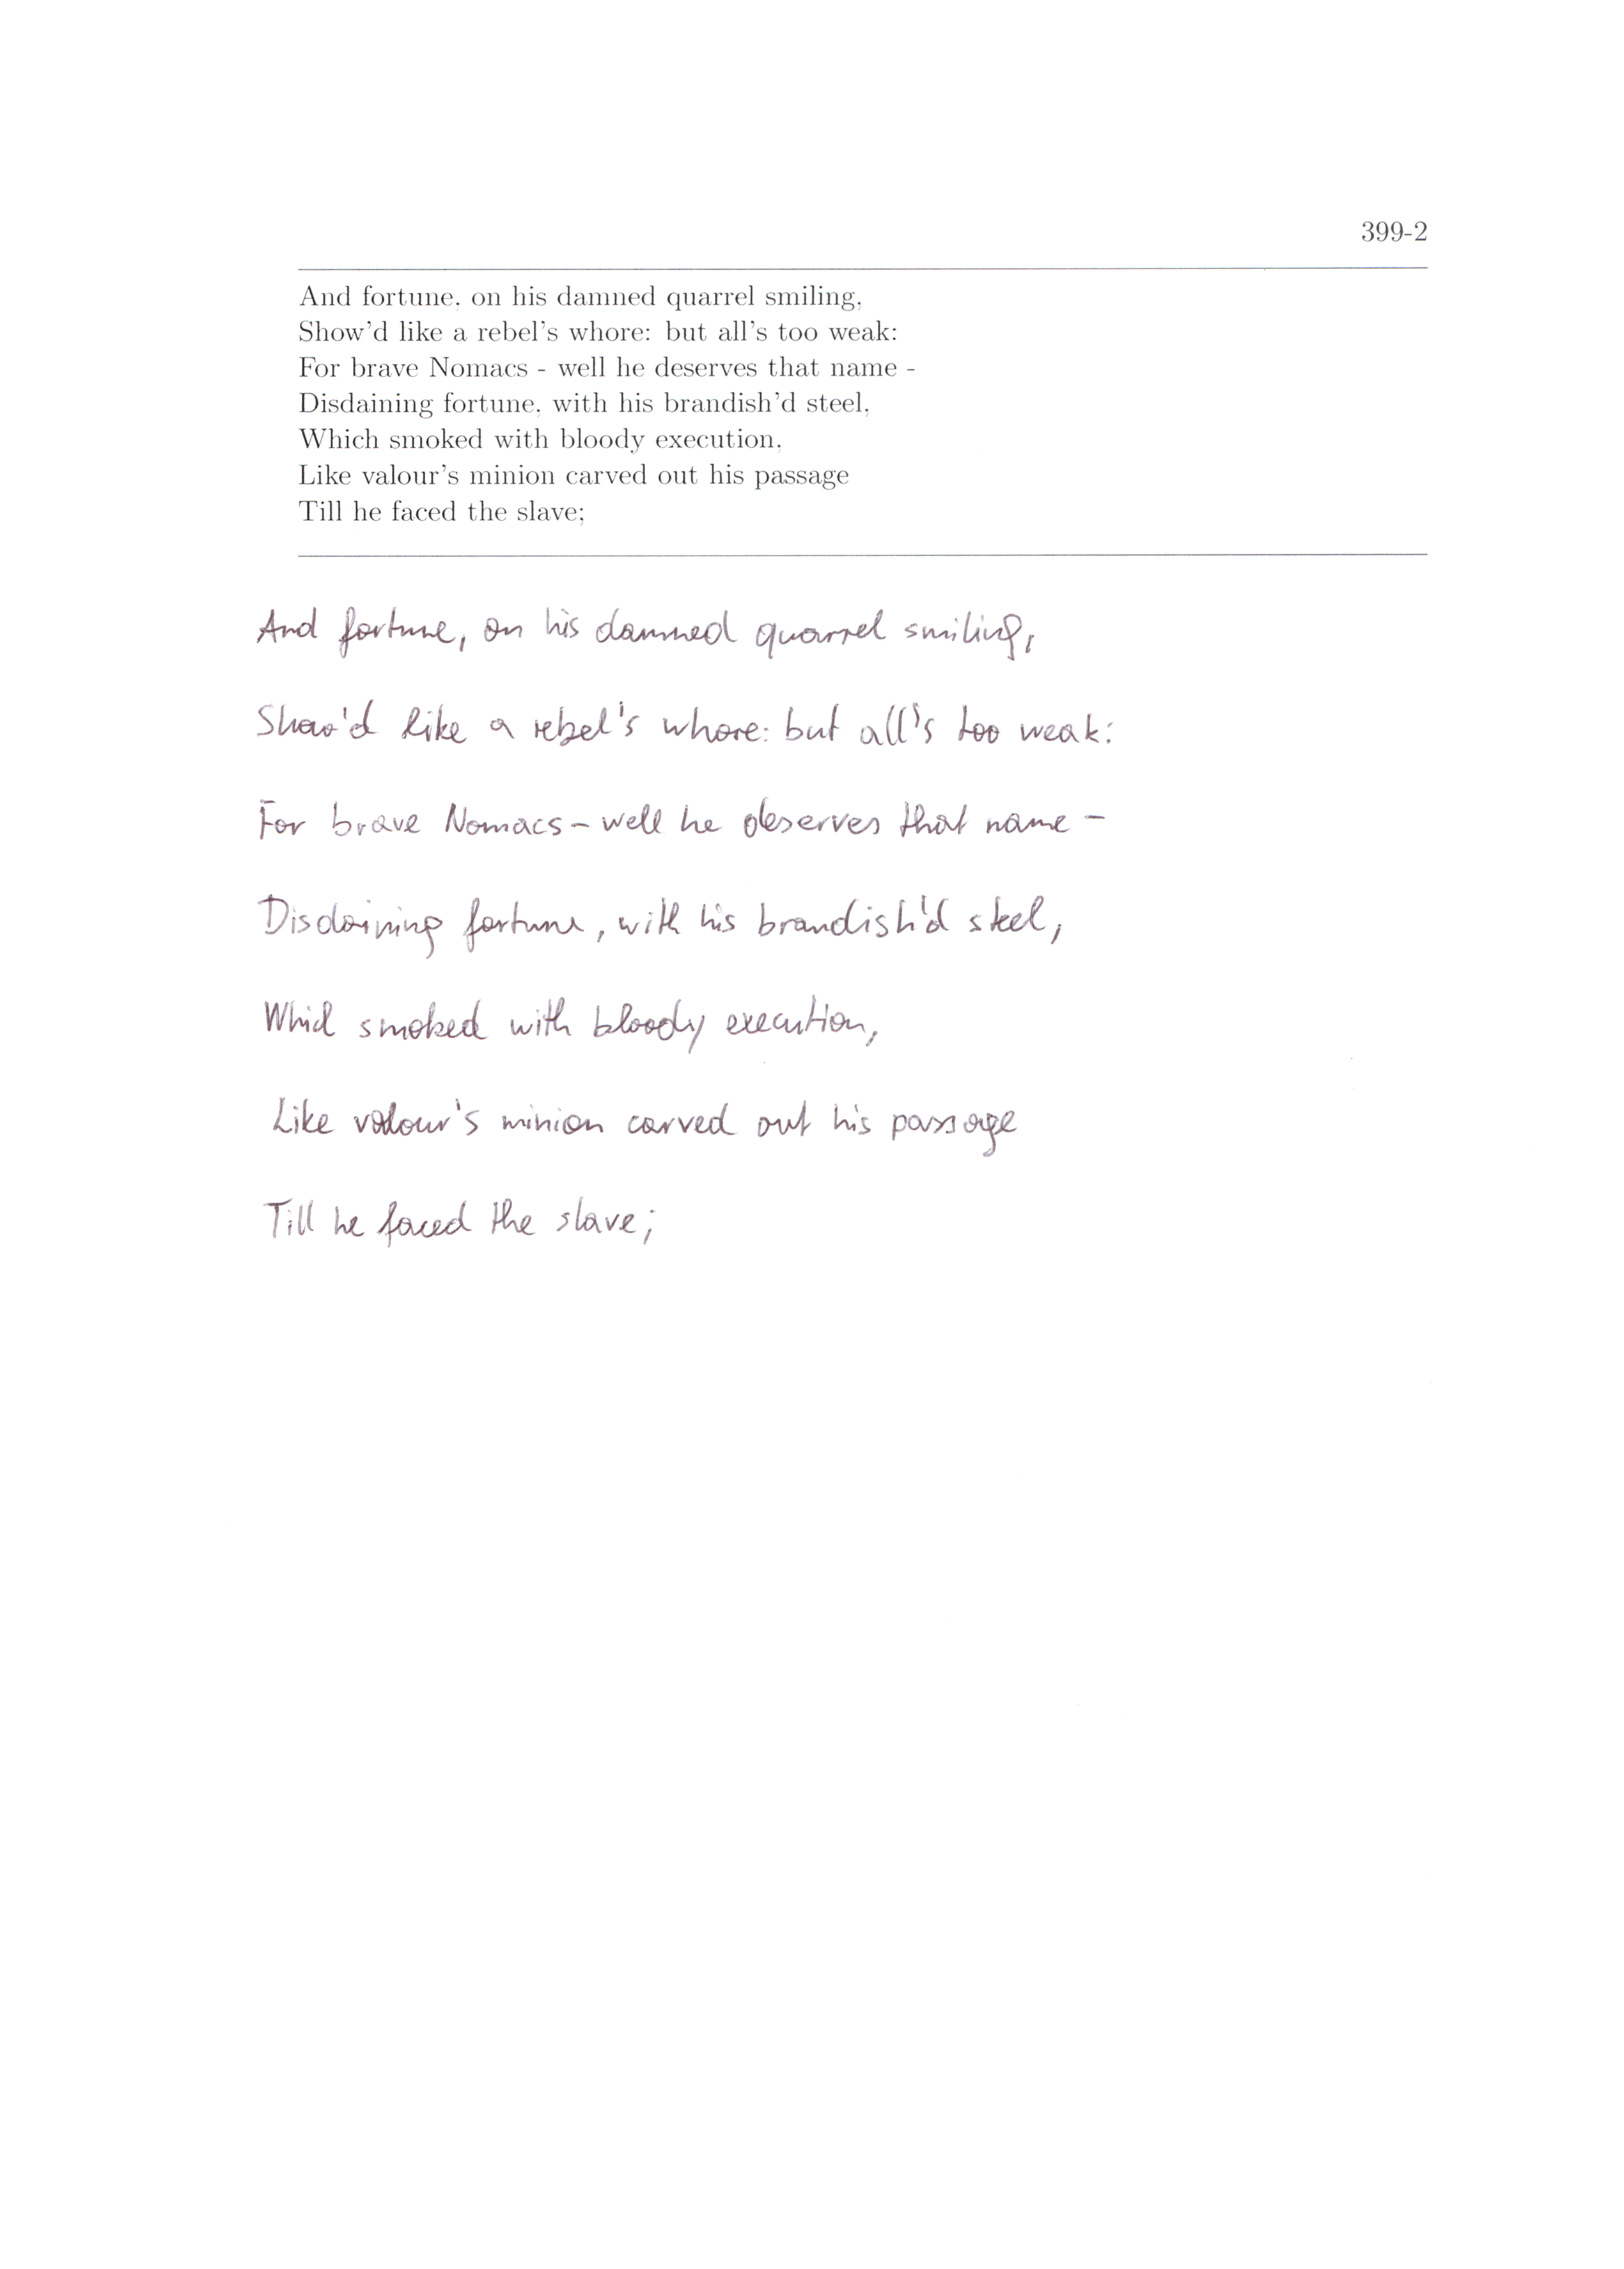 399-2
And fortune, on his damned quarrel smiling,
Show'd like a rebel's whore: but all's too weak:
For brave Nomacs - well he deserves that name -
Disdaining fortune, with his brandish'd steel,
Which smoked with bloody execution,
Like valour's minion carved out his passage
Till he faced the slave;
And fortune, on his damned quarrel smiling,
Show'd like a rebel's whore: but all's too weak:
For brave Nomacs - well he deserves that name -
Disdaining fortune, with his brandish'd steel,
Which smoked with bloody execution,
Like valour's minion carved out his passage
Till he faced the slave;